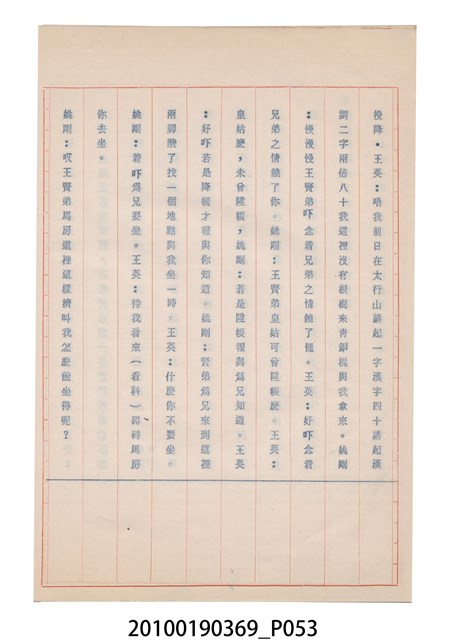 投降。王英：唔我前日在太行山講起一字漢字四十講起漢
劉二字兩倍八十我這裡沒有棍棍來青銅棍與我拿來。姚剛
：慢慢慢王賢弟吓念着兄弟之情饒了罷。王英：好吓念着
兄弟之情饒了你。姚剛：王賢弟皇姑可曾陞帳麽。王英：
皇姑麽，未曾陞帳，姚剛：若是陞帳報與爲兄知道。王英
：好吓若是陞帳才報與你知道。姚剛：賢弟爲兄來到這裡
兩脚酸了找一個地點與我坐一時。王英：什麽你不要坐。
姚剛：着吓爲兄要坐。王英：待我看來（看科）碍碍馬房
你去坐。
姚剛：哎王賢弟馬房這裡這樣擠叫我怎麽能坐得呢？
20100190369_P053